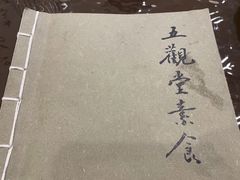 五觀堂素食